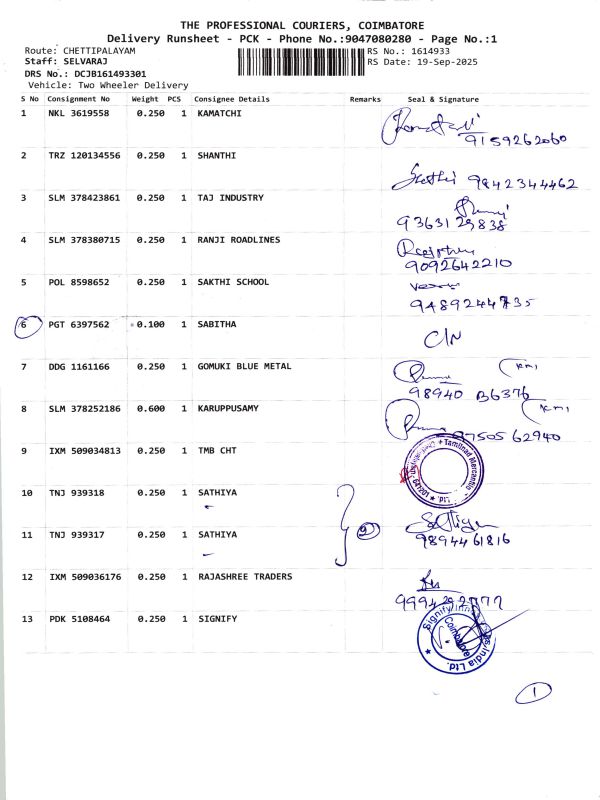 THE PROFESSIONAL COURIERS, COIMBATORE
Delivery Runsheet - PCK - Phone No.:9047080280 - Page No.:1
Route: CHETTIPALAYAM RS No.: 1614933
Staff: SELVARAJ RS Date: 19-Sep-2025
DRS No.: DCJB161493301
Vehicle: Two Wheeler Delivery
S No Consignment No Weight PCS Consignee Details Remarks Seal & Signature
1 NKL 3619558 0.250 1 KAMATCHI
9159262060
2 TRZ 120134556 0.250 1 SHANTHI
9842344462
3 SLM 378423861 0.250 1 TAJ INDUSTRY
9363129838
4 SLM 378380715 0.250 1 RANJI ROADLINES
9092642210
5 POL 8598652 0.250 1 SAKTHI SCHOOL
9489244735
6 PGT 6397562 0.100 1 SABITHA
C/N
7 DDG 1161166 0.250 1 GOMUKI BLUE METAL
98940 86376
8 SLM 378252186 0.600 1 KARUPPUSAMY
97505 62940
9 IXM 509034813 0.250 1 TMB CHT
Tamilnad Mercantile Ltd.
10 TNJ 939318 0.250 1 SATHIYA
2
11 TNJ 939317 0.250 1 SATHIYA
9894461816
12 IXM 509036176 0.250 1 RAJASHREE TRADERS
13 PDK 5108464 0.250 1 SIGNIFY
Signify India Ltd.
Coimbatore
1